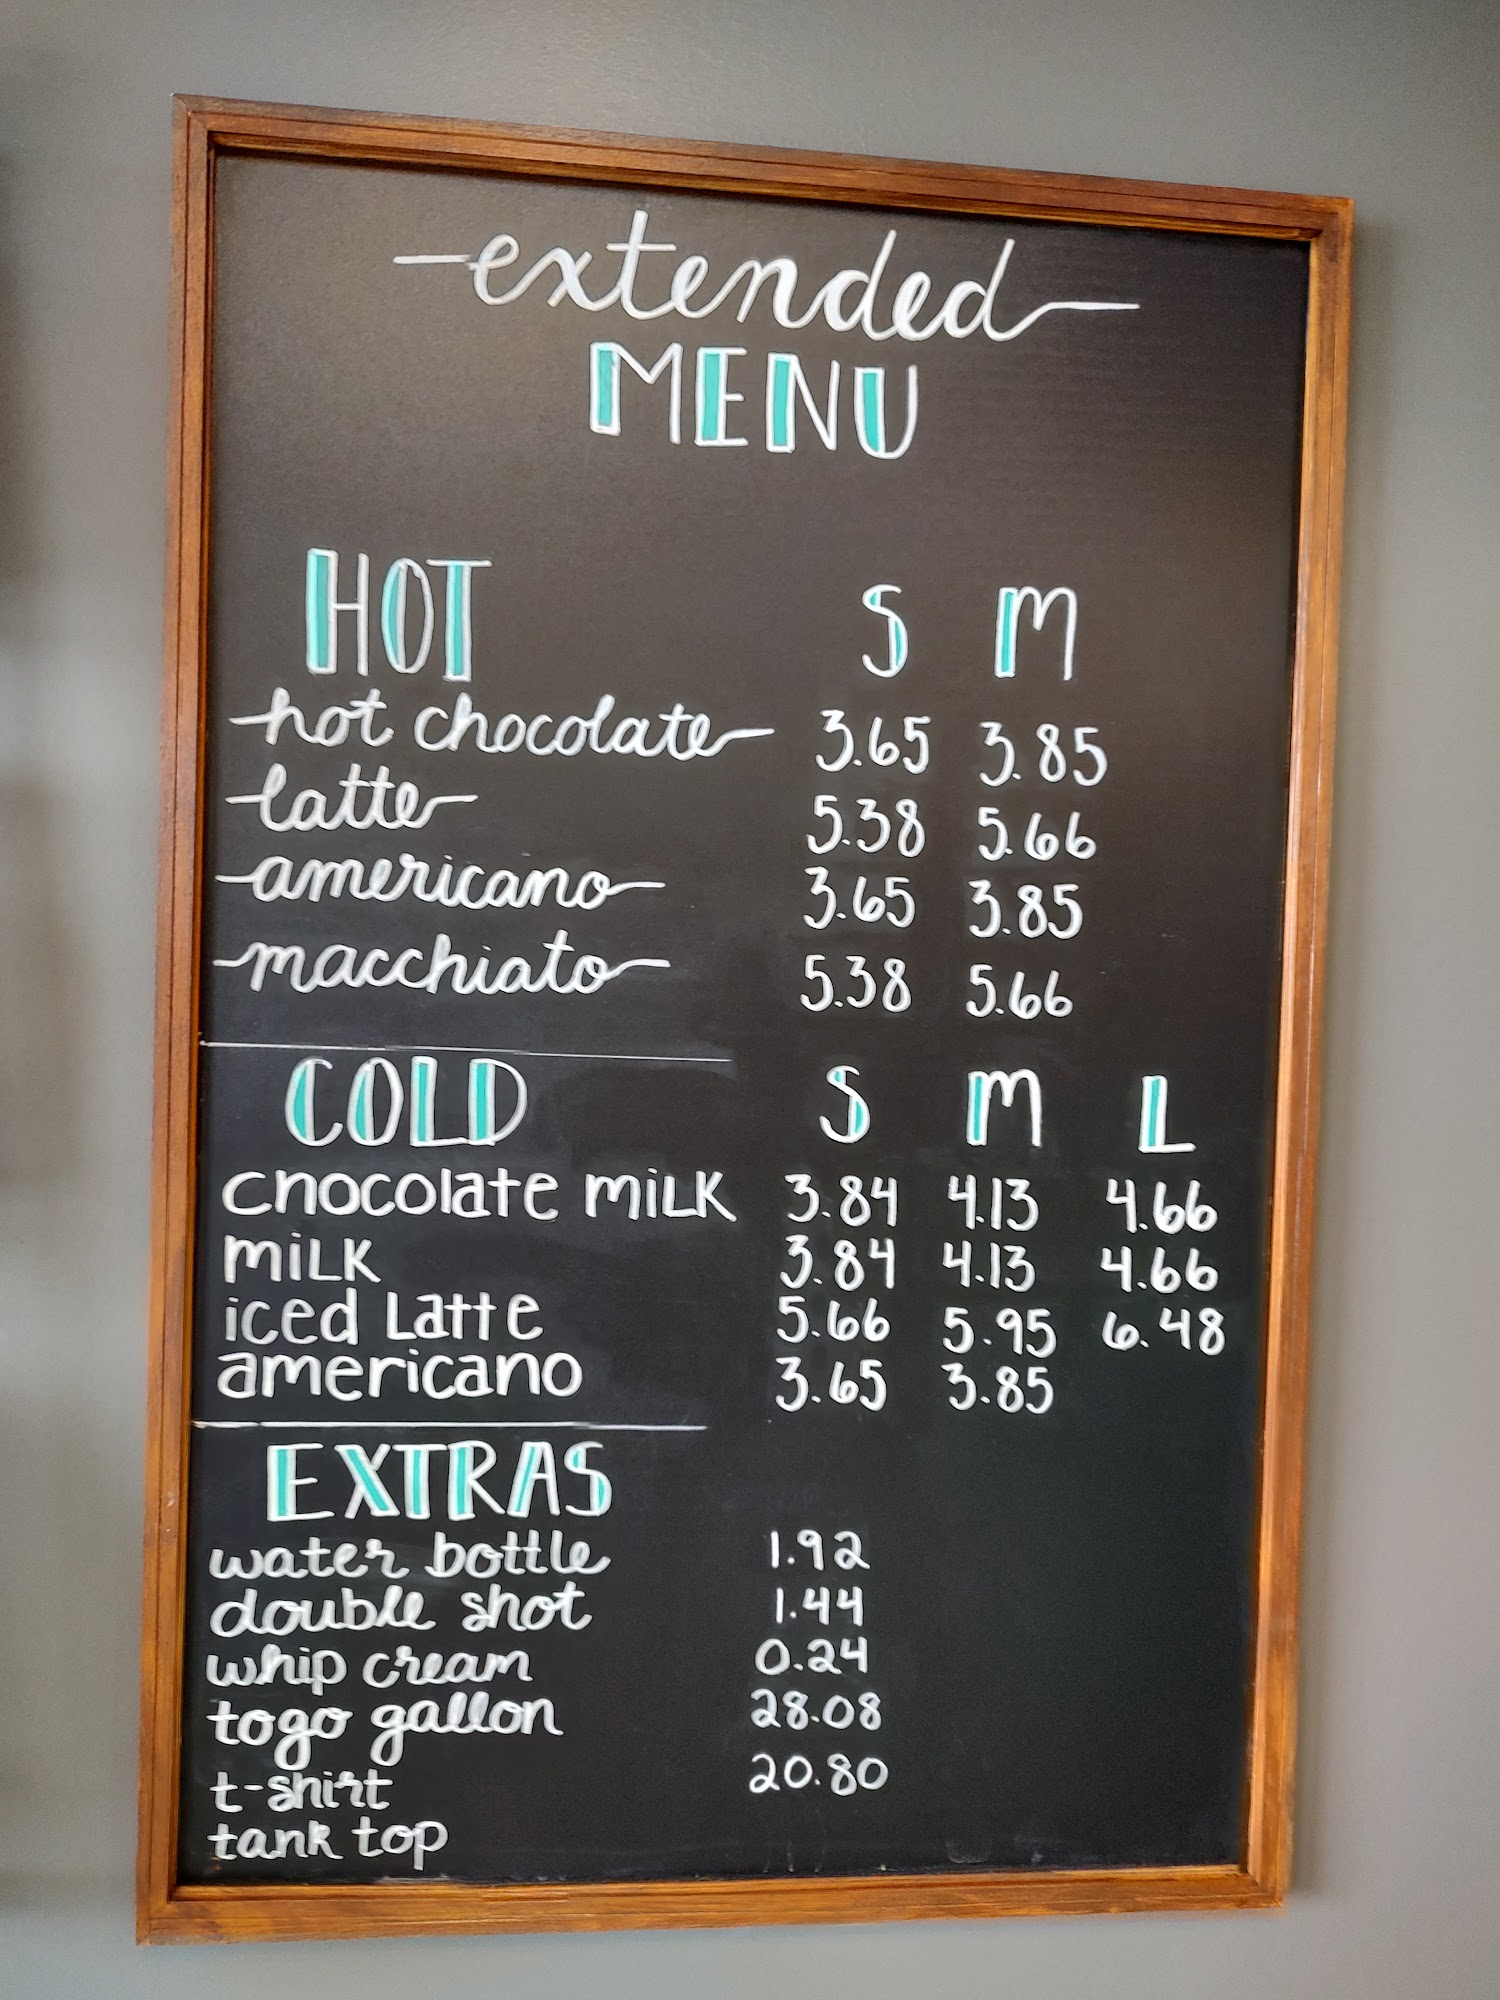 extended
MENU
HOT S M
hot chocolate 3.65 3.85
latte 5.38 5.66
americano 3.65 3.85
macchiato 5.38 5.66
COLD S M L
chocolate milk 3.84 4.13 4.66
milk 3.84 4.13 4.66
iced latte 5.66 5.95 6.48
americano 3.65 3.85
EXTRAS
water bottle 1.92
double shot 1.44
whip cream 0.24
togo gallon 28.08
t-shirt 20.80
tank top